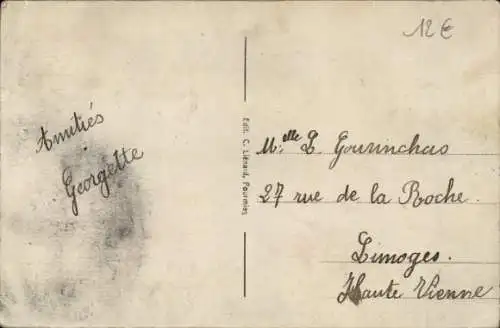 12€
Amitiés
Georgette
Edit. C. Liénard, Fourmies
Melle L. Gourinchas
27 rue de la Roche.
Limoges.
Haute Vienne